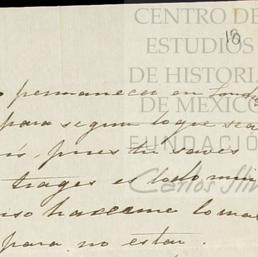 CENTRO DE
ESTUDIOS
DE HISTORIA
DE MÉXICO
FUNDACIÓN
Carlos Slim
18
permanecer en
para segun loque sea
pues tu sabes
trages el todo
hacerme
para no estar.